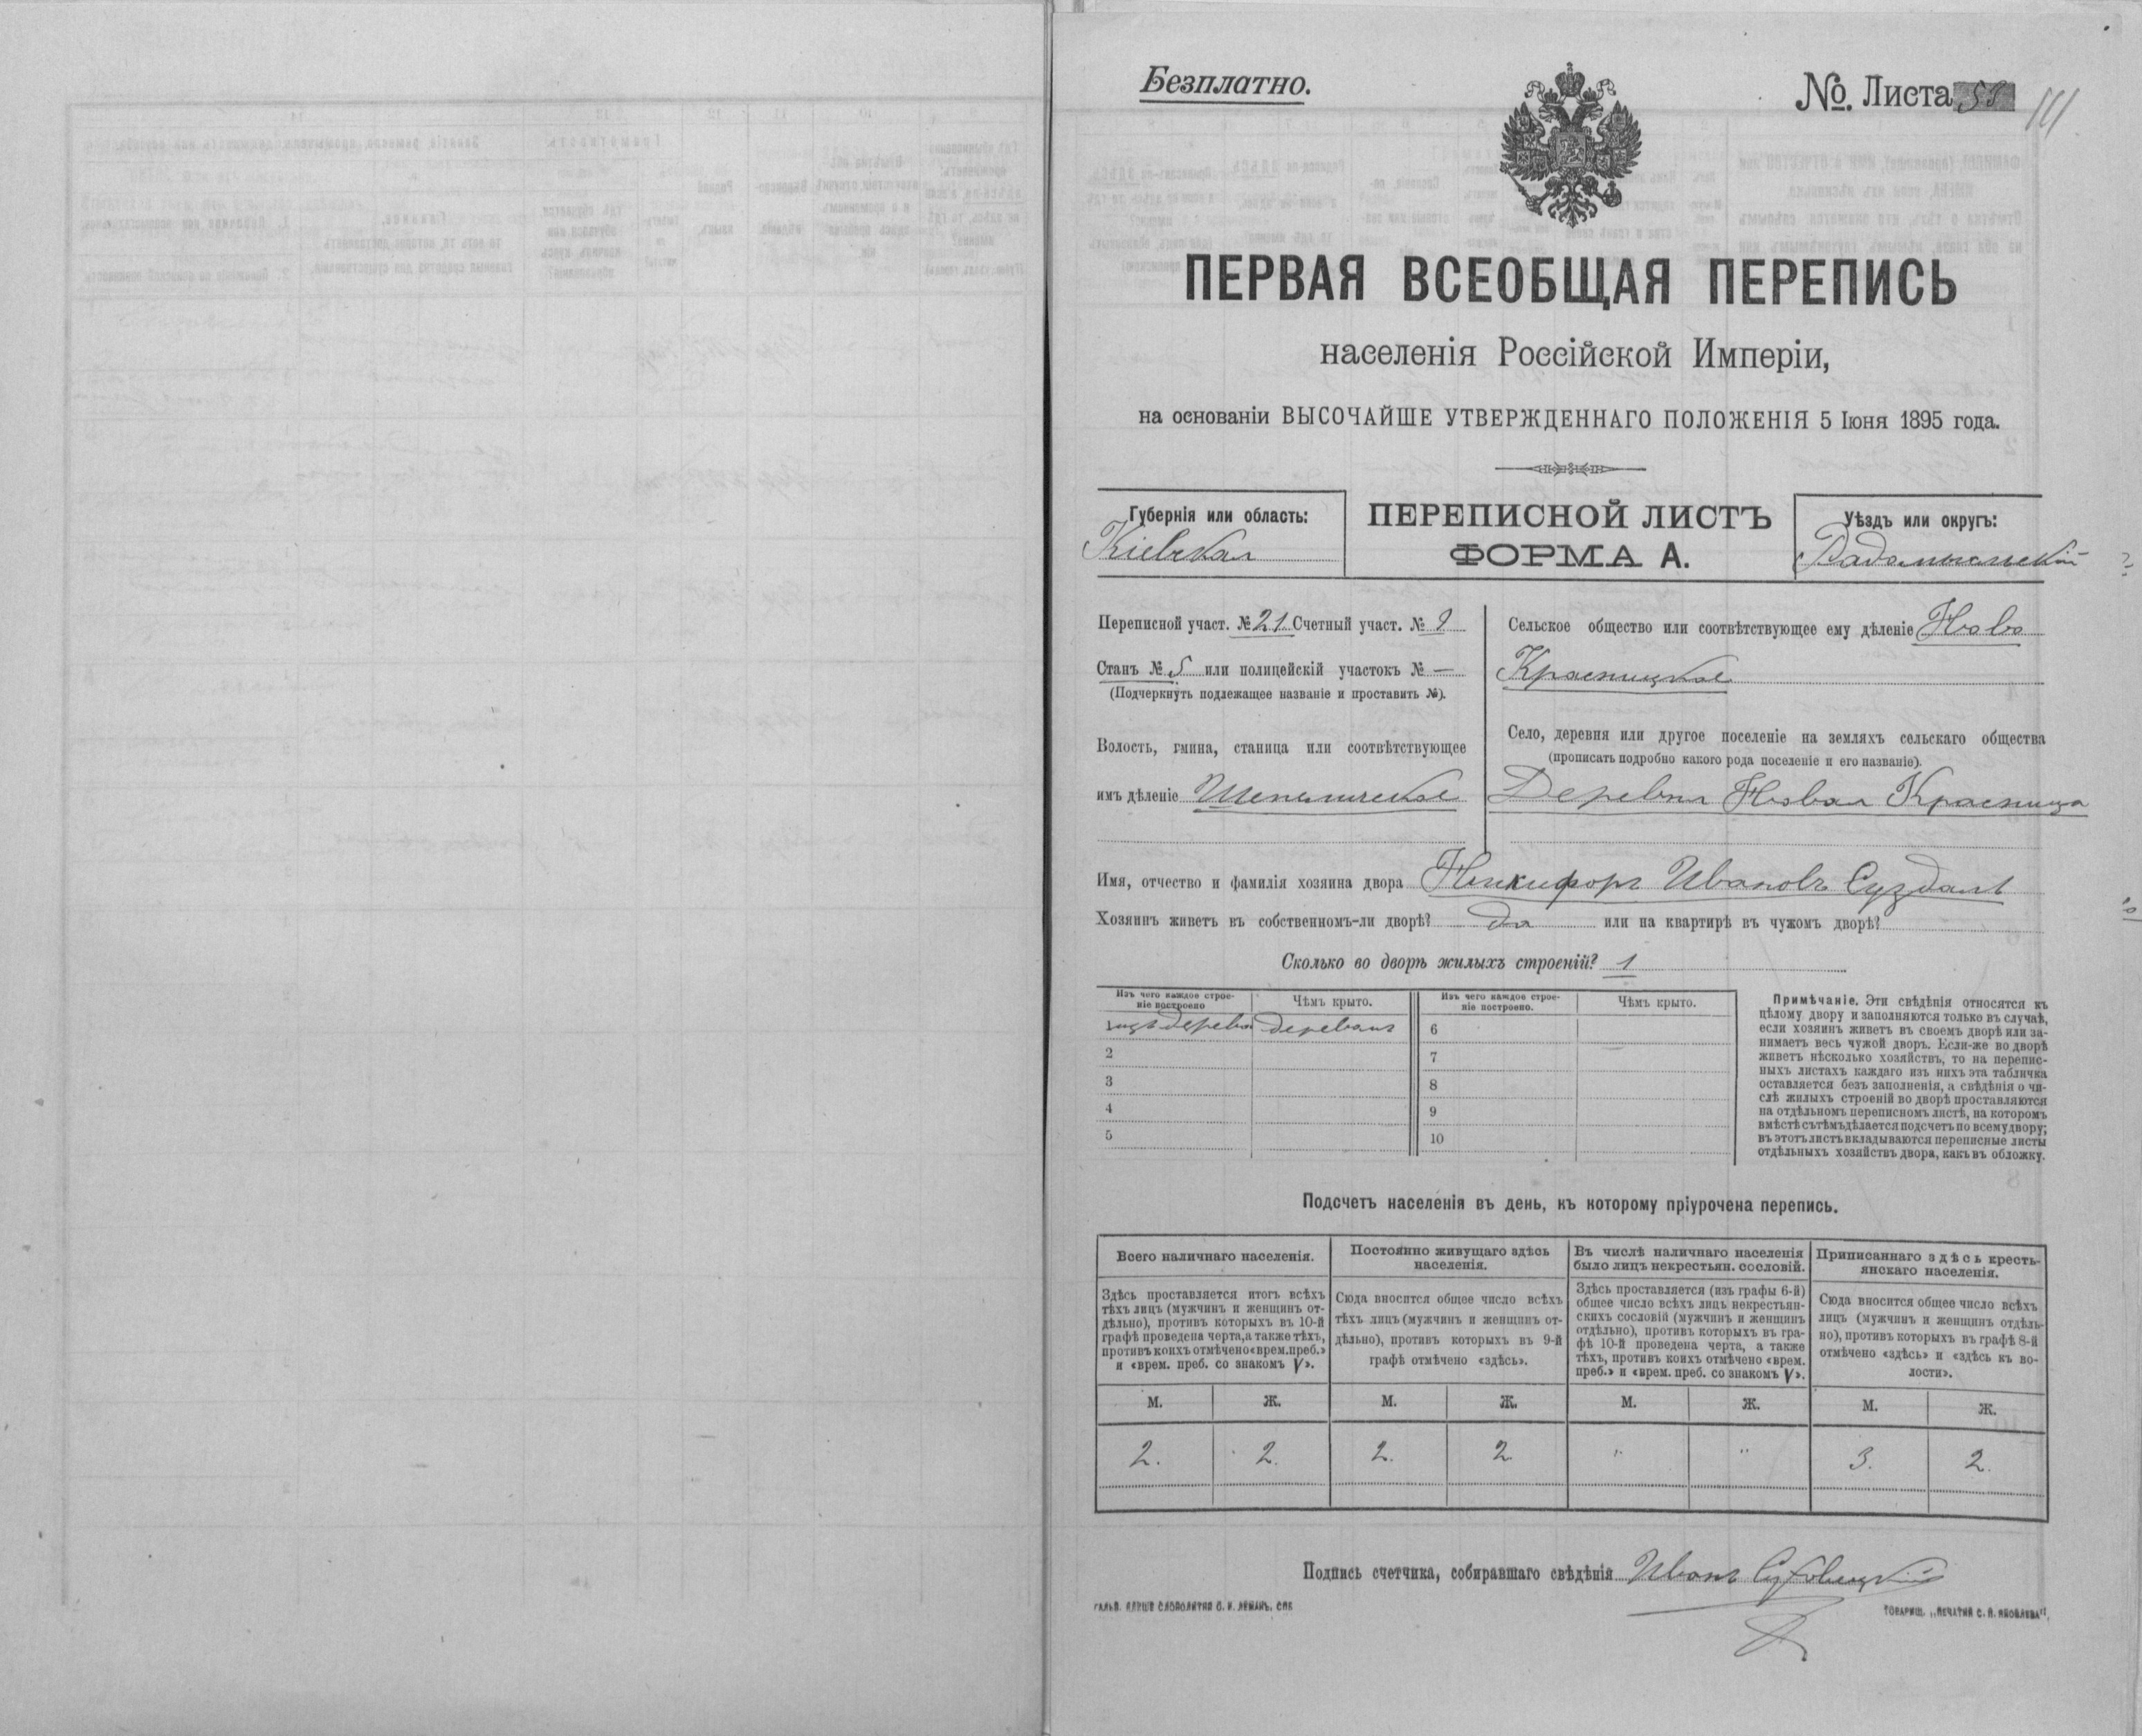 Безплатно.
№. Листа
111
ПЕРВАЯ ВСЕОБЩАЯ ПЕРЕПИСЬ
населенія Россійской Имперіи,
на основаніи ВЫСОЧАЙШЕ УТВЕРЖДЕННАГО ПОЛОЖЕНІЯ 5 Іюня 1895 года.
Губернія или область:
Кіевская
ПЕРЕПИСНОЙ ЛИСТЪ
ФОРМА А.
Уѣздъ или округъ:
Радомысльскій
Переписной участ. № 21 Счетный участ. №
Станъ № 5 или полицейскій участокъ № —
(Подчеркнуть подлежащее названіе и проставить №).
Волость, гмина, станица или соотвѣтствующее
имъ дѣленіе Шепеличское
Сельское общество или соотвѣтствующее ему дѣленіе Ново
Красницкое
Село, деревня или другое поселеніе на земляхъ сельскаго общества
(прописать подробно какого рода поселеніе и его названіе).
Деревня Новая Красница
Имя, отчество и фамилія хозяина двора Никифоръ Ивановъ Суздаль
Хозяинъ живетъ въ собственномъ-ли дворѣ? да или на квартирѣ въ чужомъ дворѣ?
Сколько во дворѣ жилыхъ строеній? 1
Изъ чего каждое строе-
ніе построено
Чѣмъ крыто.
Изъ чего каждое строе-
ніе построено.
Чѣмъ крыто.
1 изъ дерева деревомъ 6
2 7
3 8
4 9
5 10
Примѣчаніе. Эти свѣдѣнія относятся къ
цѣлому двору и заполняются только въ случаѣ,
если хозяинъ живетъ въ своемъ дворѣ или за-
нимаетъ весь чужой дворъ. Если-же во дворѣ
живетъ нѣсколько хозяйствъ, то на перепис-
ныхъ листахъ каждаго изъ нихъ эта табличка
оставляется безъ заполненія, а свѣдѣнія о чи-
слѣ жилыхъ строеній во дворѣ проставляются
на отдѣльномъ переписномъ листѣ, на которомъ
вмѣстѣ съ тѣмъ дѣлается подсчетъ по всему двору;
въ этотъ листъ вкладываются переписные листы
отдѣльныхъ хозяйствъ двора, какъ въ обложку.
Подсчетъ населенія въ день, къ которому пріурочена перепись.
Всего наличнаго населенія.
Здѣсь проставляется итогъ всѣхъ
тѣхъ лицъ (мужчинъ и женщинъ от-
дѣльно), противъ которыхъ въ 10-й
графѣ проведена черта, а также тѣхъ,
противъ коихъ отмѣчено «врем. преб.»
и «врем. преб. со знакомъ V».
Постоянно живущаго здѣсь
населенія.
Сюда вносится общее число всѣхъ
тѣхъ лицъ (мужчинъ и женщинъ от-
дѣльно), противъ которыхъ въ 9-й
графѣ отмѣчено «здѣсь».
Въ числѣ наличнаго населенія
было лицъ некрестьян. сословій.
Здѣсь проставляется (изъ графы 6-й)
общее число всѣхъ лицъ некрестьян-
скихъ сословій (мужчинъ и женщинъ
отдѣльно), противъ которыхъ въ гра-
фѣ 10-й проведена черта, а также
тѣхъ, противъ коихъ отмѣчено «врем.
преб.» и «врем. преб. со знакомъ V».
Приписаннаго здѣсь кресть-
янскаго населенія.
Сюда вносится общее число всѣхъ
лицъ (мужчинъ и женщинъ отдѣль-
но), противъ которыхъ въ графѣ 8-й
отмѣчено «здѣсь» и «здѣсь къ во-
лости».
М. Ж. М. Ж. М. Ж. М. Ж.
2. 2. 2. 2 " " 3. 2.
Подпись счетчика, собиравшаго свѣдѣнія Иванъ
ТОВАРИЩ. „ПЕЧАТНЯ С. П. ЯКОВЛЕВА“.